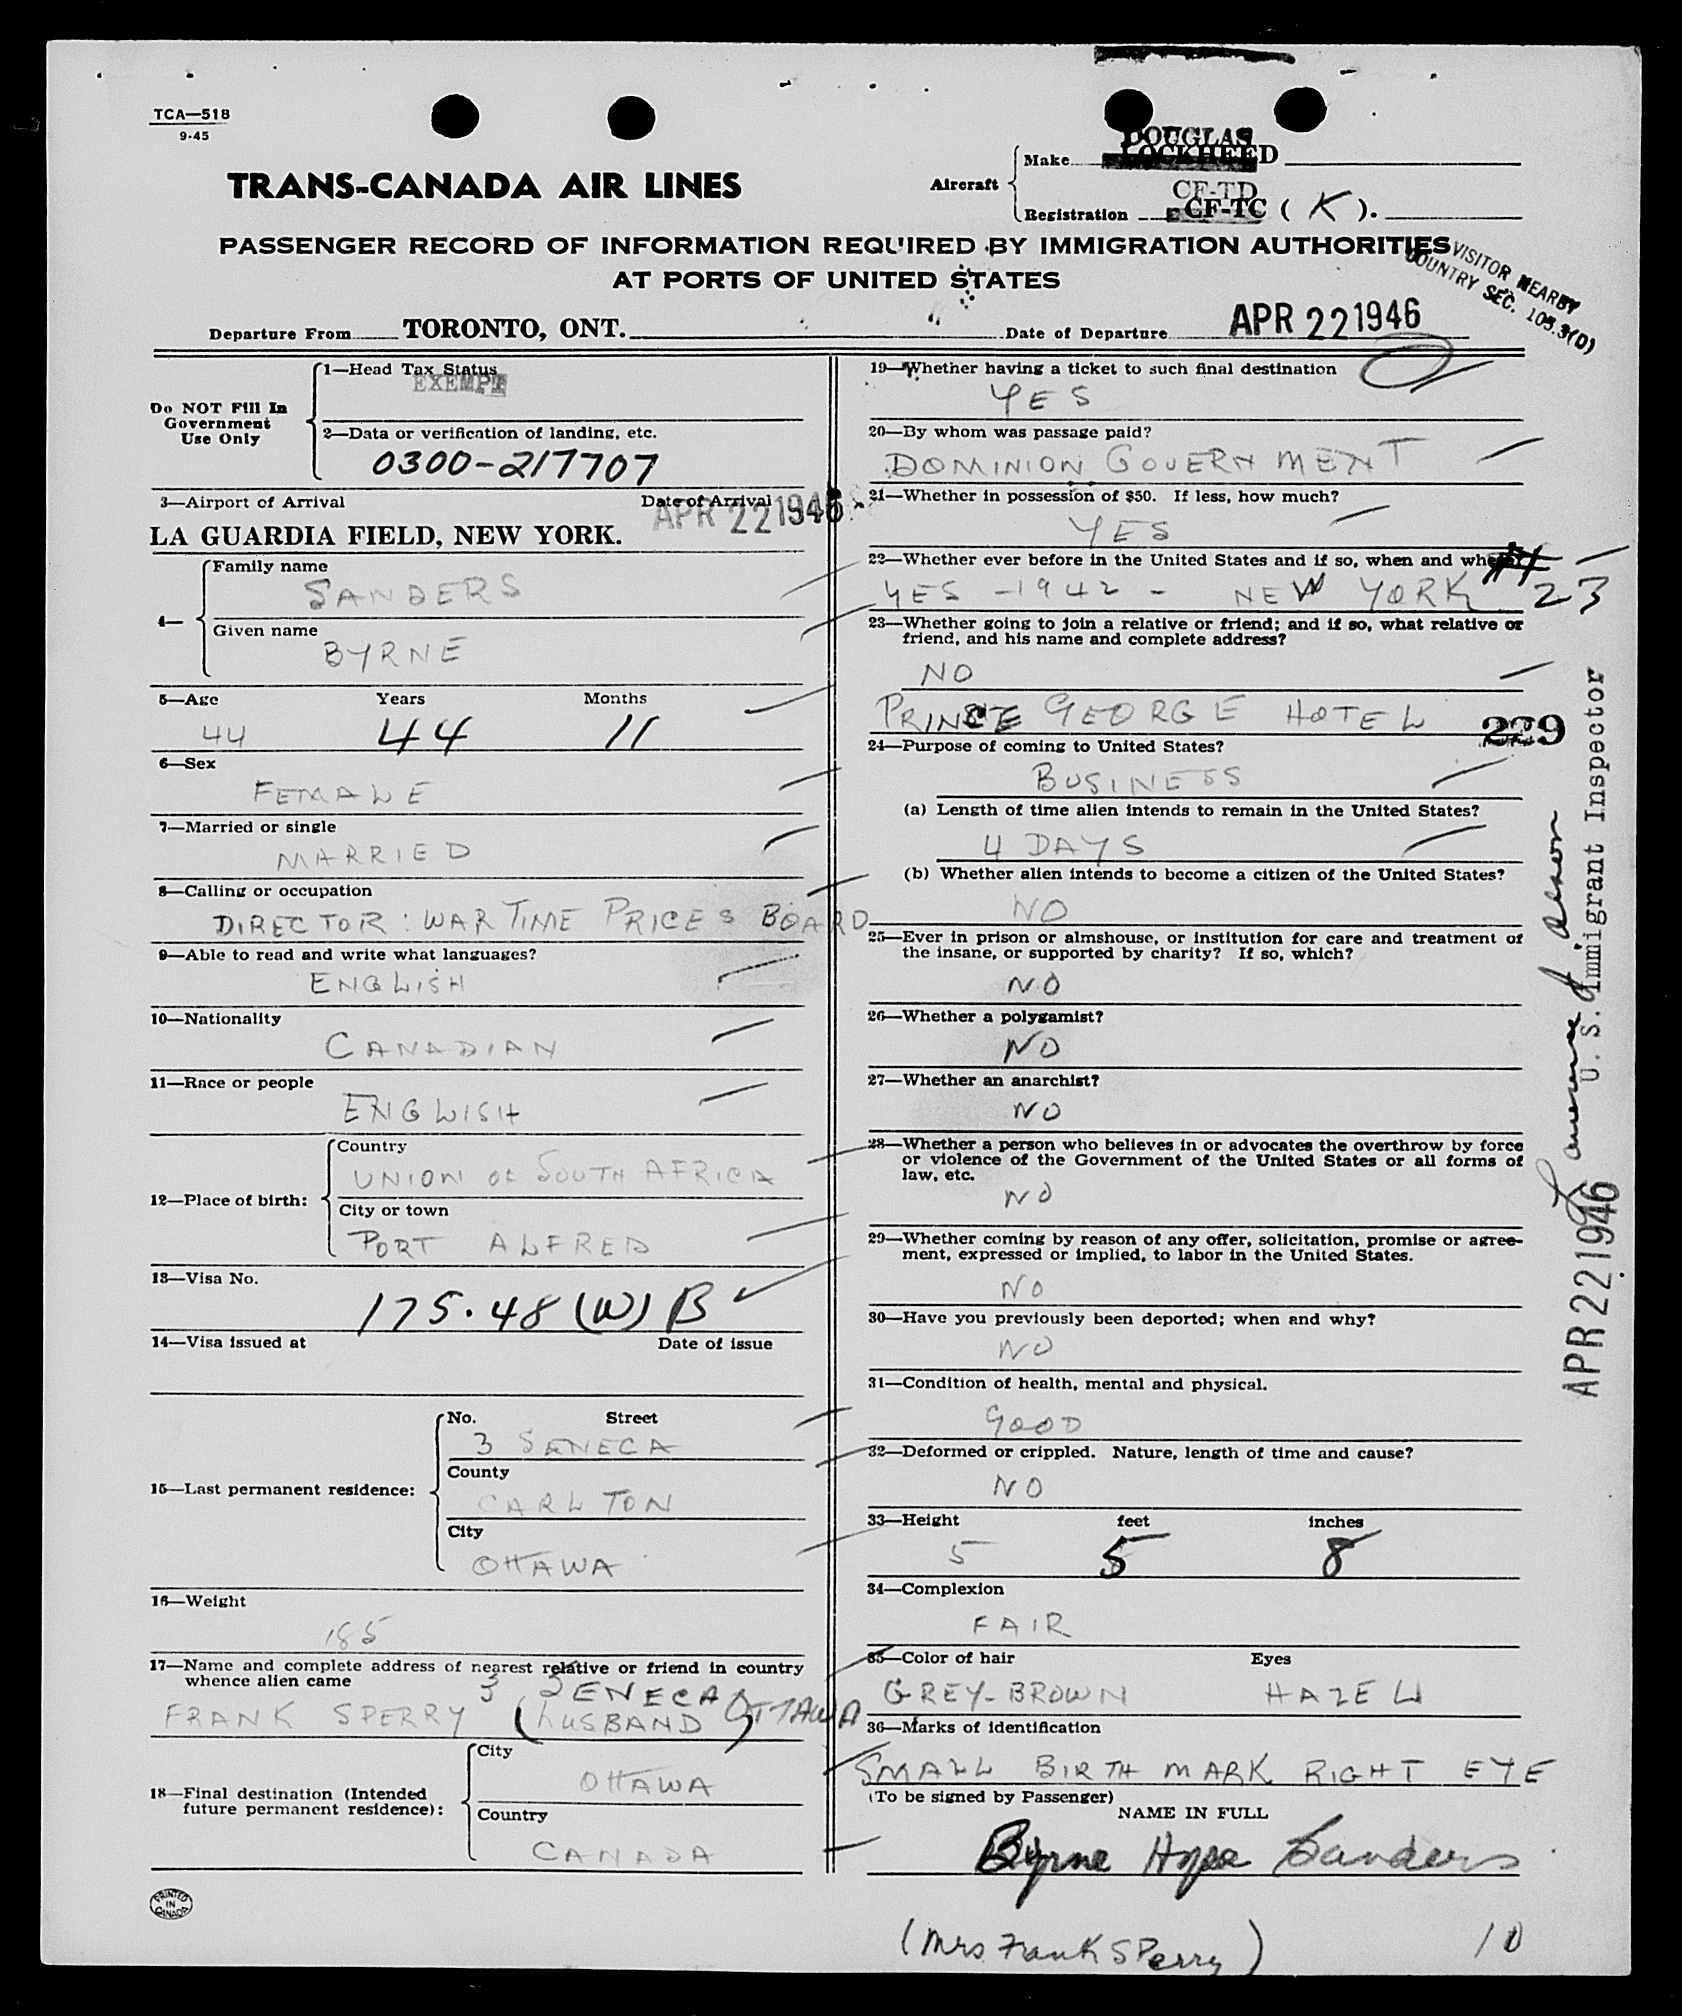 TCA—518
9-45
TRANS-CANADA AIR LINES
Aircraft
Make DOUGLAS LOCKHEED
CF-TD
Registration CF-TC ( K ).
PASSENGER RECORD OF INFORMATION REQUIRED BY IMMIGRATION AUTHORITIES
AT PORTS OF UNITED STATES
VISITOR NEARBY
COUNTRY SEC. 105.3(D)
Departure From TORONTO, ONT. Date of Departure APR 22 1946
Do NOT Fill In
Government
Use Only
1—Head Tax Status
EXEMPT
2—Data or verification of landing, etc.
0300-217707
3—Airport of Arrival Date of Arrival
LA GUARDIA FIELD, NEW YORK. APR 22 1946
4—
Family name
SANDERS
Given name
BYRNE
5—Age Years Months
44 44 11
6—Sex
FEMALE
7—Married or single
MARRIED
8—Calling or occupation
DIRECTOR: WAR TIME PRICES BOARD
9—Able to read and write what languages?
ENGLISH
10—Nationality
CANADIAN
11—Race or people
ENGLISH
12—Place of birth:
Country
UNION OF SOUTH AFRICA
City or town
PORT ALFRED
13—Visa No.
175.48 (W) B
14—Visa issued at Date of issue
15—Last permanent residence:
No. Street
3 SENECA
County
CARLTON
City
OTTAWA
16—Weight
185
17—Name and complete address of nearest relative or friend in country
whence alien came
3 SENECA OTTAWA
FRANK SPERRY (HUSBAND)
18—Final destination (Intended
future permanent residence):
City
OTTAWA
Country
CANADA
PRINTED
IN
CANADA
19—Whether having a ticket to such final destination
YES
20—By whom was passage paid?
DOMINION GOVERNMENT
21—Whether in possession of $50. If less, how much?
YES
22—Whether ever before in the United States and if so, when and where?
YES - 1942 - NEW YORK 23
23—Whether going to join a relative or friend; and if so, what relative or
friend, and his name and complete address?
NO
PRINCE GEORGE HOTEL
229
24—Purpose of coming to United States?
BUSINESS
(a) Length of time alien intends to remain in the United States?
4 DAYS
(b) Whether alien intends to become a citizen of the United States?
NO
25—Ever in prison or almshouse, or institution for care and treatment of
the insane, or supported by charity? If so, which?
NO
26—Whether a polygamist?
NO
27—Whether an anarchist?
NO
28—Whether a person who believes in or advocates the overthrow by force
or violence of the Government of the United States or all forms of
law, etc.
NO
29—Whether coming by reason of any offer, solicitation, promise or agree-
ment, expressed or implied, to labor in the United States.
NO
30—Have you previously been deported; when and why?
NO
31—Condition of health, mental and physical.
GOOD
32—Deformed or crippled. Nature, length of time and cause?
NO
33—Height feet inches
5 5 8
34—Complexion
FAIR
35—Color of hair Eyes
GREY-BROWN HAZEL
36—Marks of identification
SMALL BIRTH MARK RIGHT EYE
(To be signed by Passenger)
NAME IN FULL
Byrne Hope Sanders
(Mrs Frank Sperry)
10
U. S. Immigrant Inspector
APR 22 1946